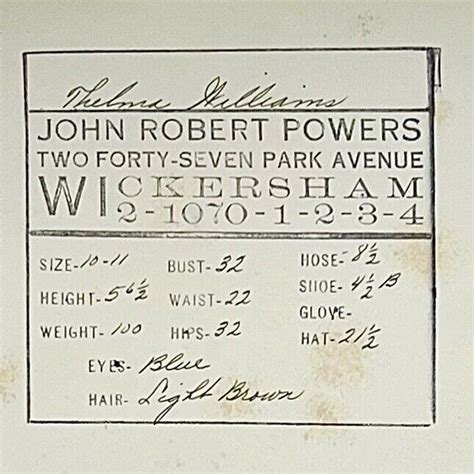 Thelma Williams
JOHN ROBERT POWERS
TWO FORTY-SEVEN PARK AVENUE
WICKERSHAM
2-1070-1-2-3-4
SIZE-10-11 BUST-32 HOSE-8½
HEIGHT-5 6½ WAIST-22 SHOE-4½ B
GLOVE-
WEIGHT-100 HIPS-32 HAT-21½
EYES-Blue
HAIR-Light Brown